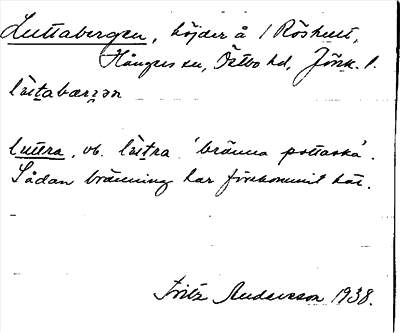 Luttabergen, höjder å 1 Röshult,
Hångers sn, Östbo hd, Jönk. l.
lùtabærjən
luttra, vb. lùtra 'bränna pottaska'.
Sådan bränning har förekommit här.
Fritz Andersson 1938.